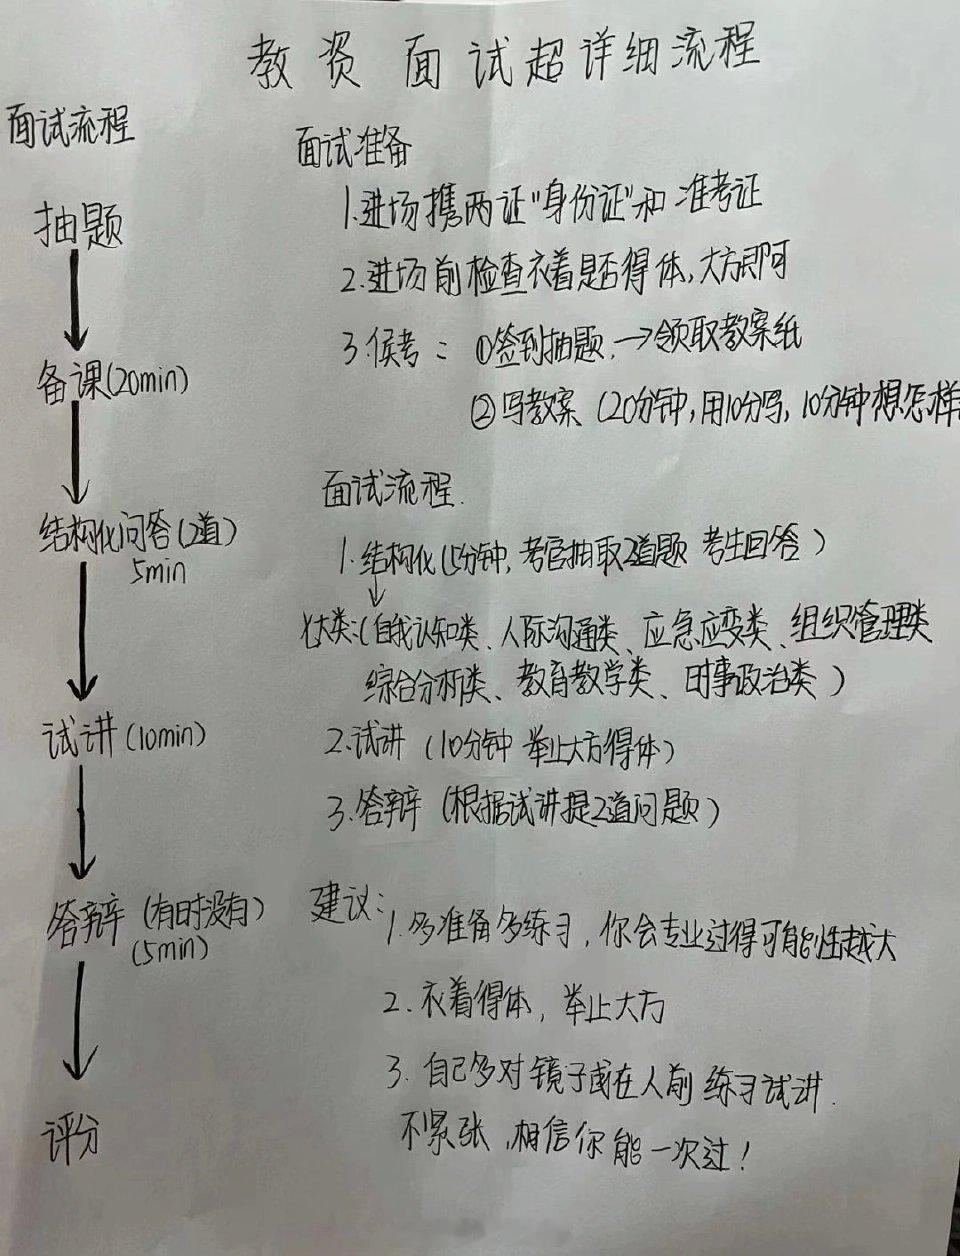 教资面试超详细流程
面试流程
抽题
备课(20min)
结构化问答(2道)
5min
试讲(10min)
答辩(有时没有)
(5min)
评分
面试准备
1.进场携两证"身份证"和准考证
2.进场前检查衣着是否得体,大方即可
3.候考:①签到抽题.→领取教案纸
②写教案(20分钟,用10分写,10分钟想怎样
面试流程.
1.结构化(5分钟,考官抽取2道题 考生回答)
大类:(自我认知类、人际沟通类、应急应变类、组织管理类
综合分析类、教育教学类、时事政治类)
2.试讲(10分钟 举止大方得体)
3.答辩(根据试讲提2道问题)
建议:
1.多准备多练习,你会专业过得可能性越大
2.衣着得体,举止大方
3.自己多对镜子或在人前练习试讲.
不紧张,相信你能一次过!